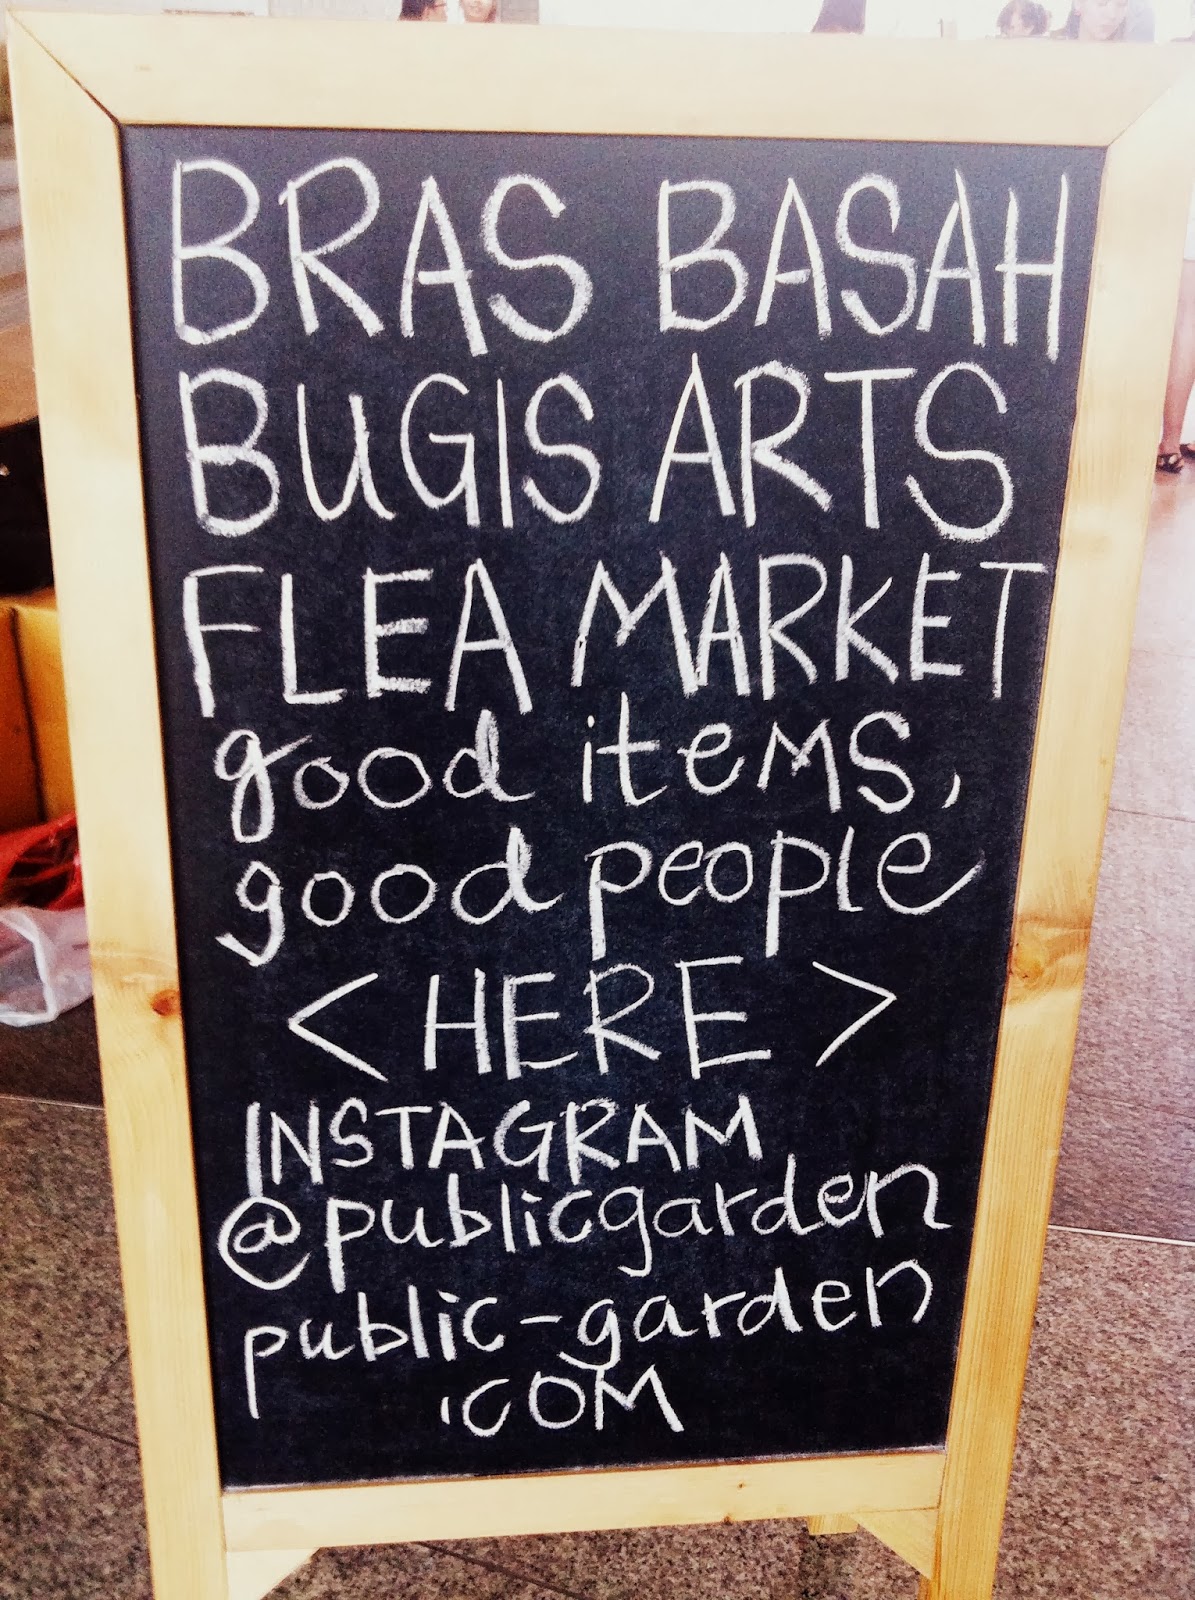 BRAS BASAH
BUGIS ARTS
FLEA MARKET
good items,
good people
< HERE >
INSTAGRAM
@publicgarden
public-garden
.COM